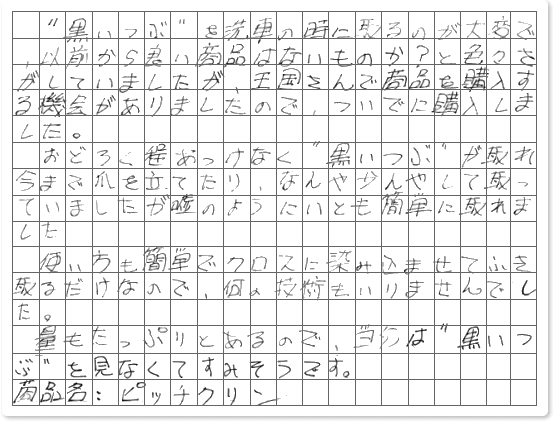 "黒いつぶ"を洗車の時に取るのが大変で
、以前から良い商品はないものか？と色々さ
がしていましたが、王国さんで商品を購入す
る機会がありましたので、ついでに購入しま
した。
おどろく程あっけなく"黒いつぶ"が取れ
今まで爪を立てたり、なんや少んやして取っ
ていましたが嘘のようにいとも簡単に取れま
した
使い方も簡単でクロスに染み込ませてふき
取るだけなので、何の技術もいりませんでし
た。
量もたっぷりとあるので、当分は"黒いつ
ぶ"を見なくてすみそうです。
商品名：ピッチクリン